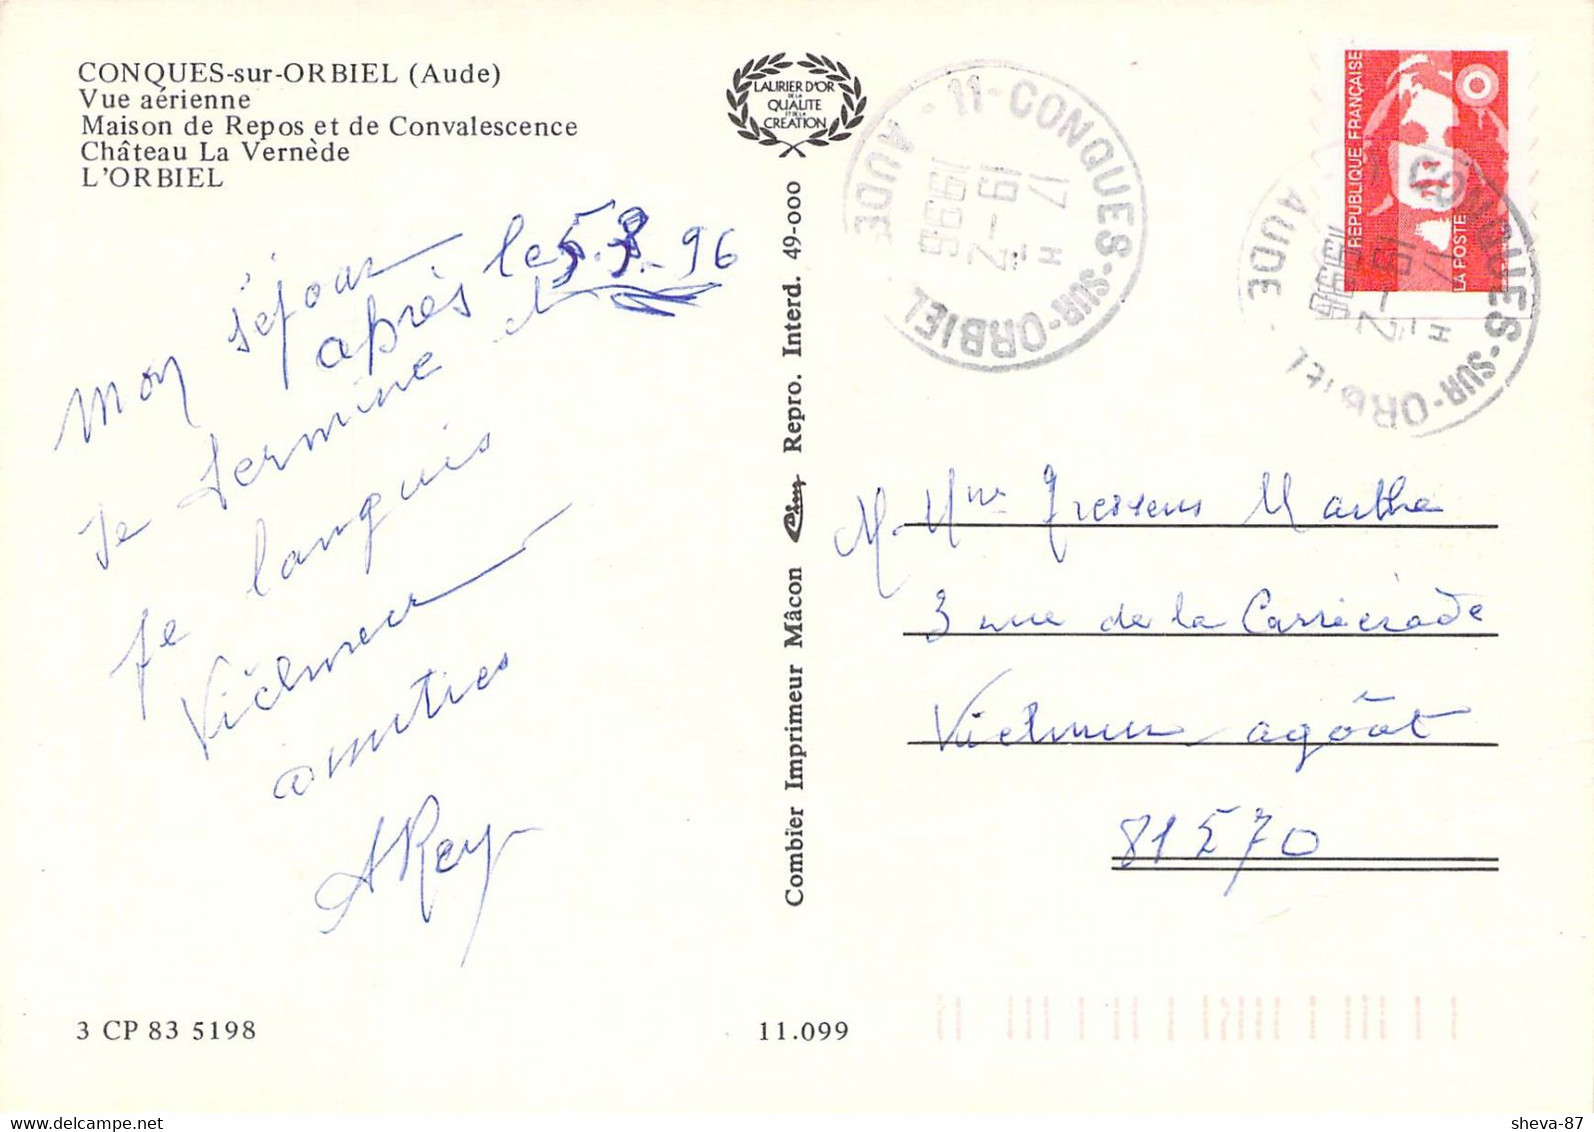 CONQUES-sur-ORBIEL (Aude)
Vue aérienne
Maison de Repos et de Convalescence
Château La Vernède
L'ORBIEL
LAURIER D'OR
DE LA
QUALITE
ET DE LA
CREATION
11-CONQUES-SUR-ORBIEL
AUDE
17 H
19-2
1996
REPUBLIQUE FRANÇAISE
LA POSTE
CONQUES-SUR-ORBIEL
AUDE
17 H
19-2
1996
Mon séjour
après le 96
se termine
je languis
amitiés
A Rey
Combier Imprimeur Mâcon Cim Repro. Interd. 49-000
M. Mme Marthe
3 rue de la
agôut
81570
3 CP 83 5198
11.099
sheva-87